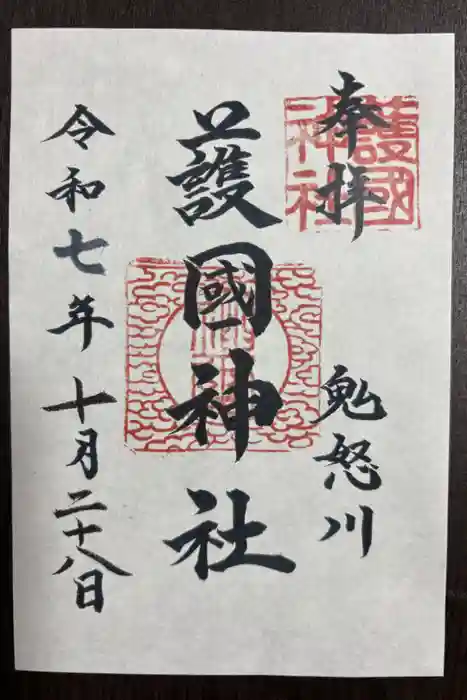 奉拝
鬼怒川
護國神社
令和七年十月二十八日
護國
神社